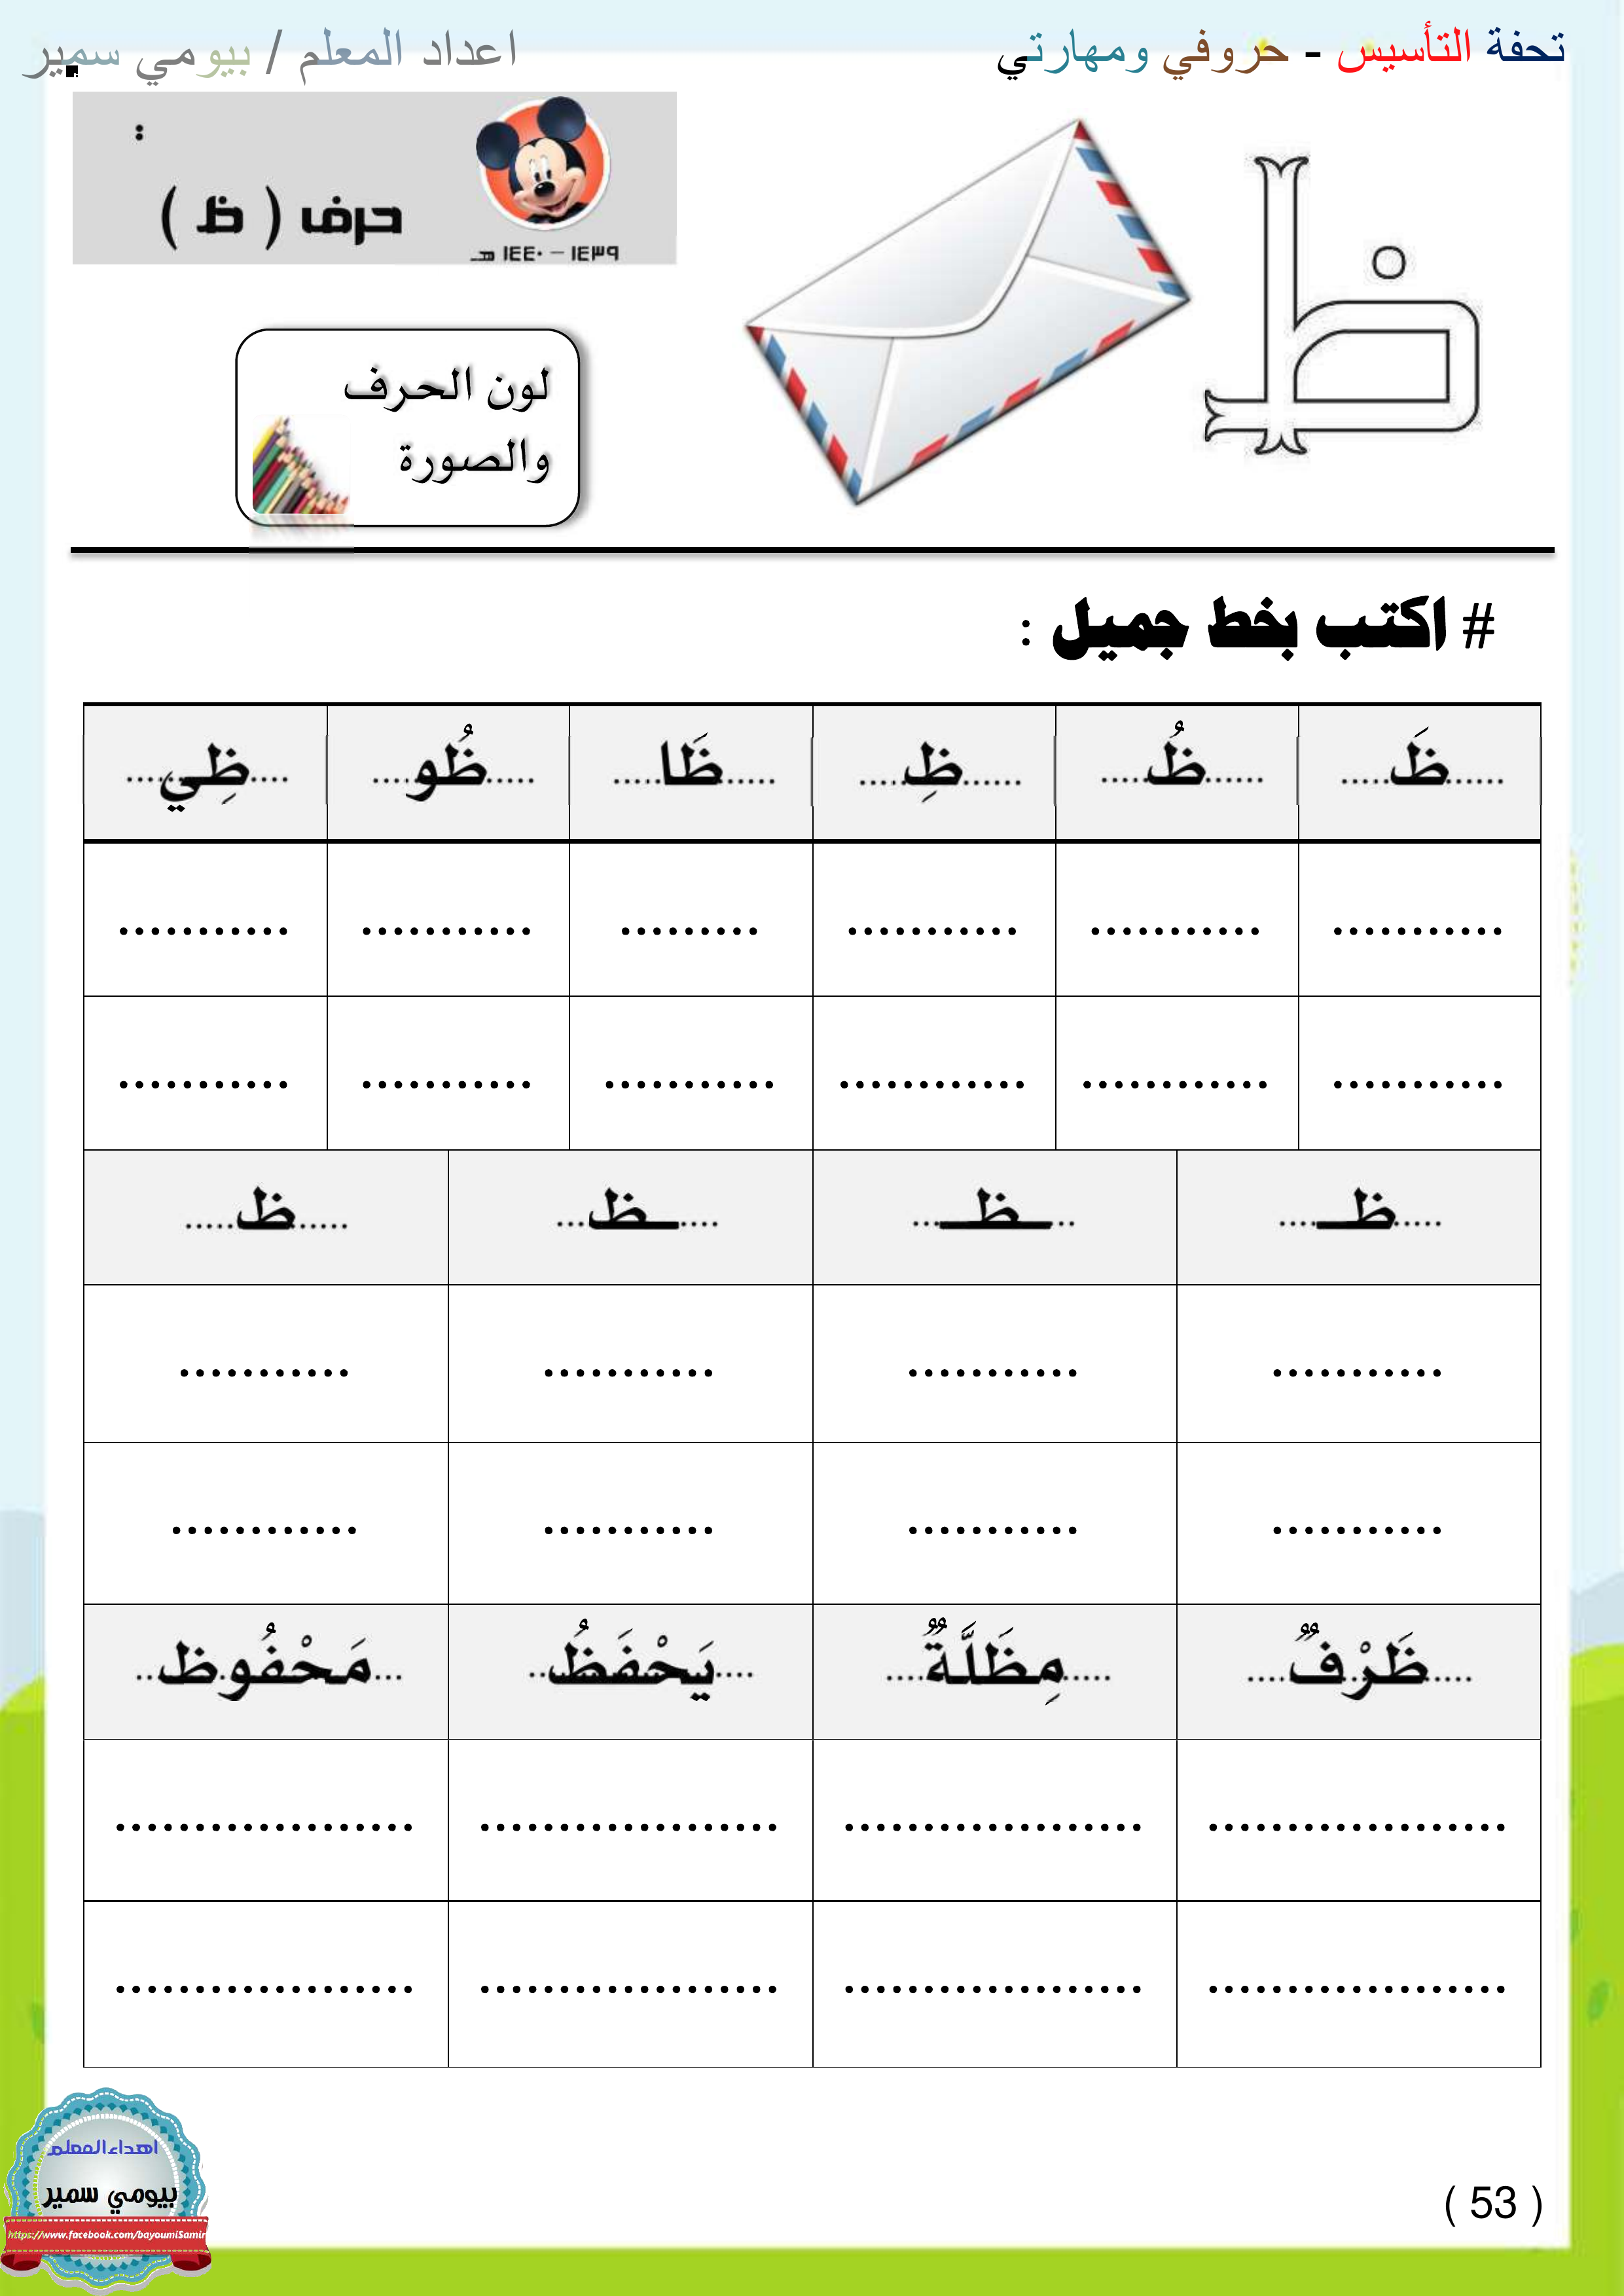 تحفة التأسيس - حروفي ومهارتي
اعداد المعلم / بيومي سمير
:
حرف ( ظ )
١٤٣٩ – ١٤٤٠ هـ
ظ
لون الحرف
والصورة
# اكتب بخط جميل :
......ظَ..... ......ظُ..... ......ظِ..... .....ظَا..... .....ظُو.... ....ظِي....
........... ........... ........... ......... ........... ...........
........... ............ ............ ........... ........... ...........
.....ظـ.... ..ـظـ... ....ـظ... ......ظ.....
........... ........... ........... ...........
........... ........... ........... ............
....ظَرْفٌ.... .....مِظَلَّةٌ.... ....يَحْفَظُ.. ...مَحْفُوظ..
................... ................... ................... ...................
................... ................... ................... ...................
اهداء المعلم
بيومي سمير
https://www.facebook.com/bayoumiSamir
( 53 )